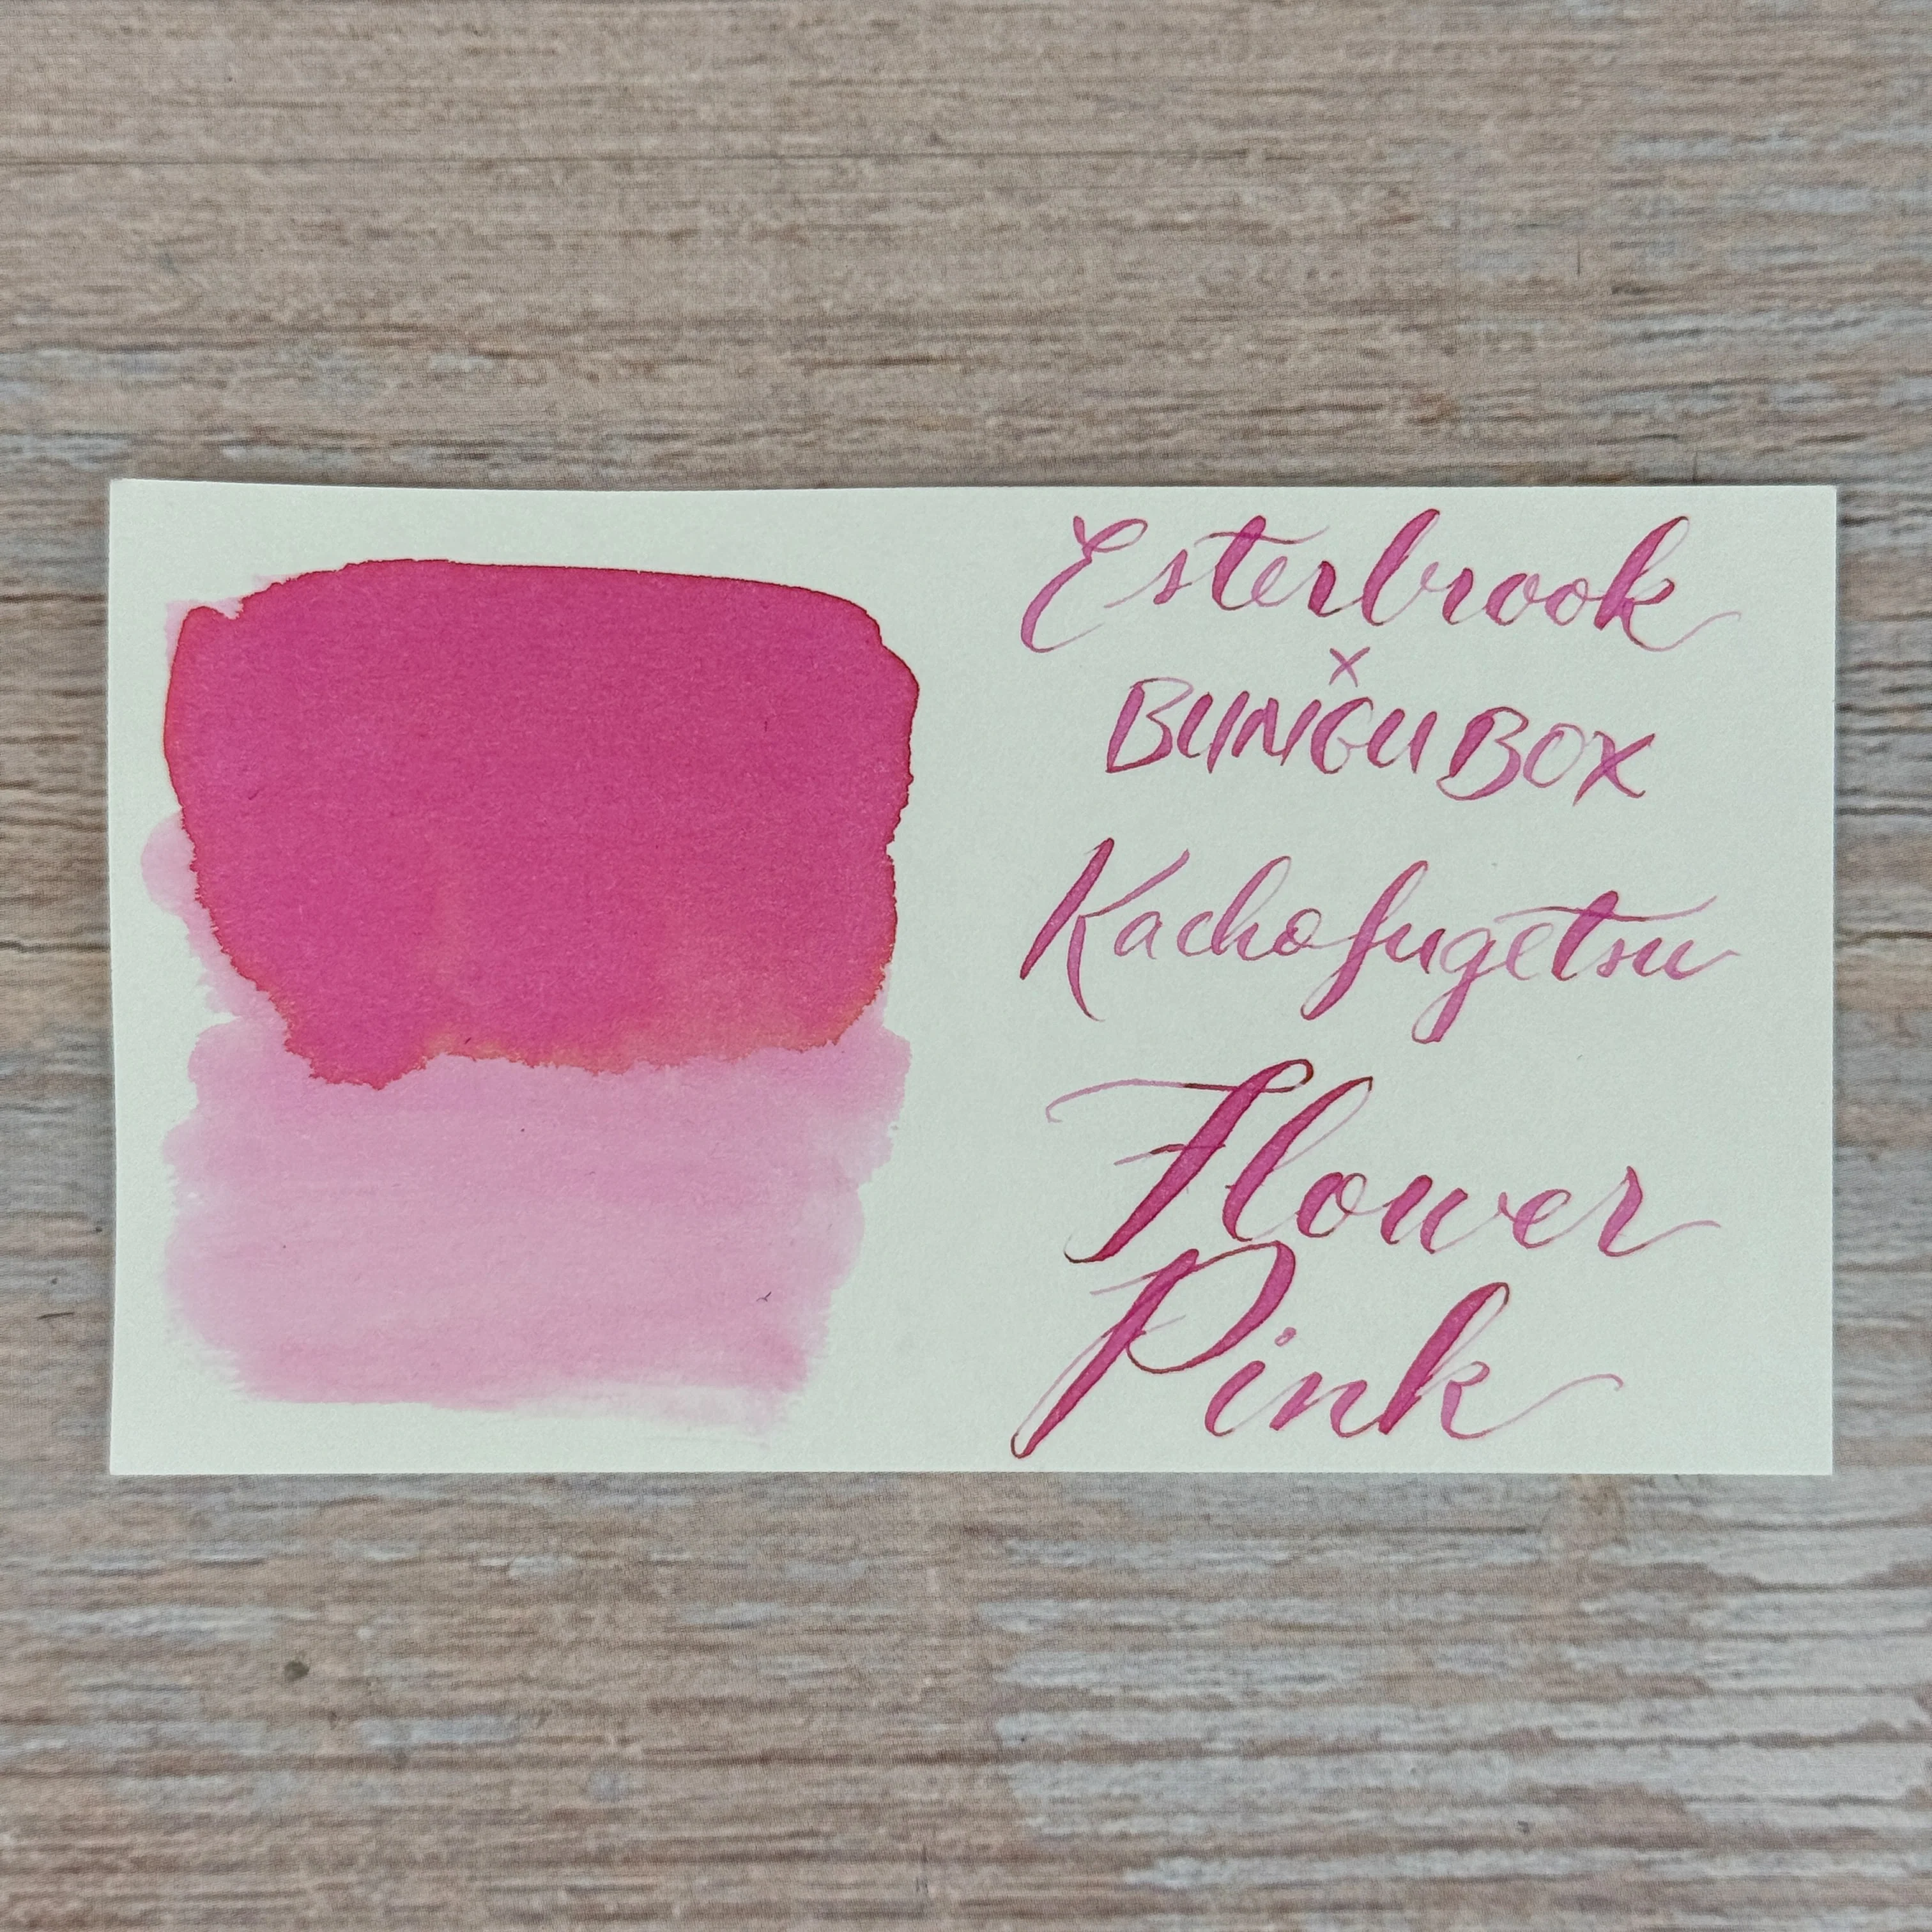 Esterbrook
x
BUNGUBOX
Kachofugetsu
Flower
Pink